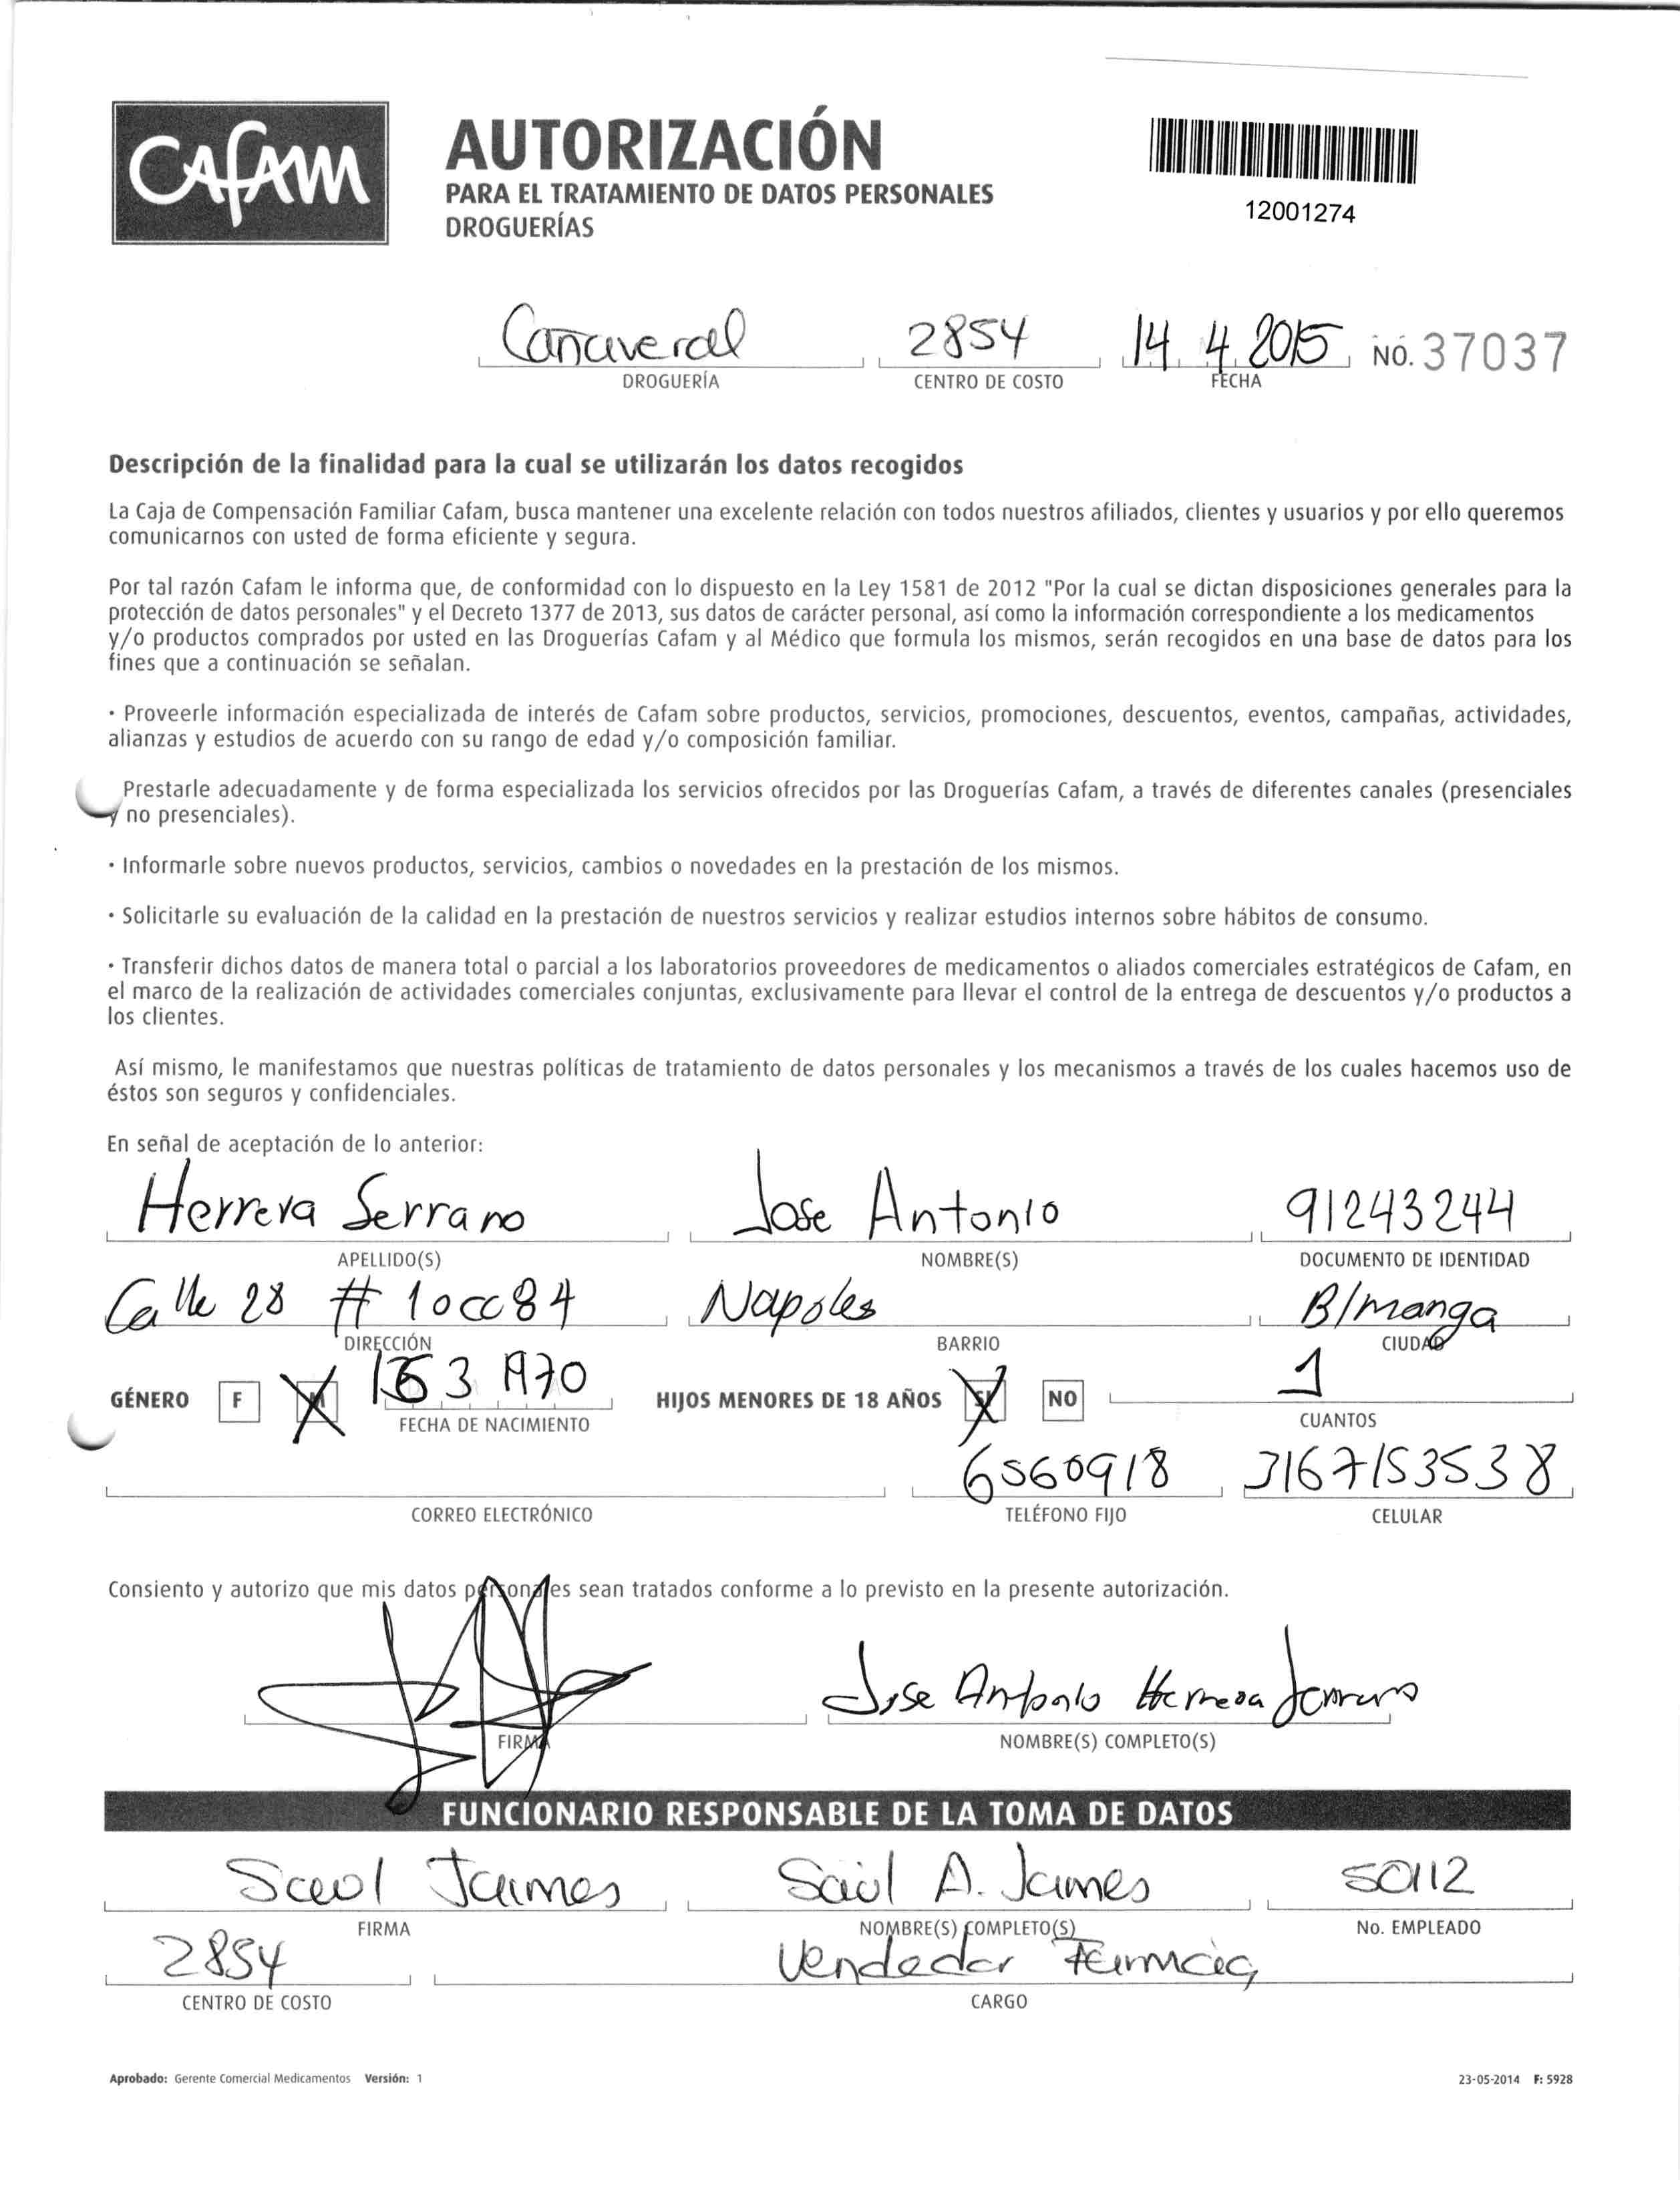 CAFAM
AUTORIZACIÓN
PARA EL TRATAMIENTO DE DATOS PERSONALES
DROGUERÍAS
12001274
Cañaveral 2854 14 4 2015 NO. 37037
DROGUERÍA CENTRO DE COSTO FECHA
Descripción de la finalidad para la cual se utilizarán los datos recogidos
La Caja de Compensación Familiar Cafam, busca mantener una excelente relación con todos nuestros afiliados, clientes y usuarios y por ello queremos
comunicarnos con usted de forma eficiente y segura.
Por tal razón Cafam le informa que, de conformidad con lo dispuesto en la Ley 1581 de 2012 "Por la cual se dictan disposiciones generales para la
protección de datos personales" y el Decreto 1377 de 2013, sus datos de carácter personal, así como la información correspondiente a los medicamentos
y/o productos comprados por usted en las Droguerías Cafam y al Médico que formula los mismos, serán recogidos en una base de datos para los
fines que a continuación se señalan.
· Proveerle información especializada de interés de Cafam sobre productos, servicios, promociones, descuentos, eventos, campañas, actividades,
alianzas y estudios de acuerdo con su rango de edad y/o composición familiar.
Prestarle adecuadamente y de forma especializada los servicios ofrecidos por las Droguerías Cafam, a través de diferentes canales (presenciales
y no presenciales).
· Informarle sobre nuevos productos, servicios, cambios o novedades en la prestación de los mismos.
· Solicitarle su evaluación de la calidad en la prestación de nuestros servicios y realizar estudios internos sobre hábitos de consumo.
· Transferir dichos datos de manera total o parcial a los laboratorios proveedores de medicamentos o aliados comerciales estratégicos de Cafam, en
el marco de la realización de actividades comerciales conjuntas, exclusivamente para llevar el control de la entrega de descuentos y/o productos a
los clientes.
Así mismo, le manifestamos que nuestras políticas de tratamiento de datos personales y los mecanismos a través de los cuales hacemos uso de
éstos son seguros y confidenciales.
En señal de aceptación de lo anterior:
Herrera Serrano Jose Antonio 91243244
APELLIDO(S) NOMBRE(S) DOCUMENTO DE IDENTIDAD
Calle 28 # 10cc84 Napoles B/manga
DIRECCIÓN BARRIO CIUDAD
GÉNERO F M 3 1970 HIJOS MENORES DE 18 AÑOS SI NO 1
FECHA DE NACIMIENTO CUANTOS
6560918 3167153538
CORREO ELECTRÓNICO TELÉFONO FIJO CELULAR
Consiento y autorizo que mis datos personales sean tratados conforme a lo previsto en la presente autorización.
Jose Antonio Herrera Serrano
FIRMA NOMBRE(S) COMPLETO(S)
FUNCIONARIO RESPONSABLE DE LA TOMA DE DATOS
Saul Jaimes Saúl A. Jaimes 50112
FIRMA NOMBRE(S) COMPLETO(S) No. EMPLEADO
2854 Vendedor Farmacia
CENTRO DE COSTO CARGO
Aprobado: Gerente Comercial Medicamentos Versión: 1 23-05-2014 F: 5928